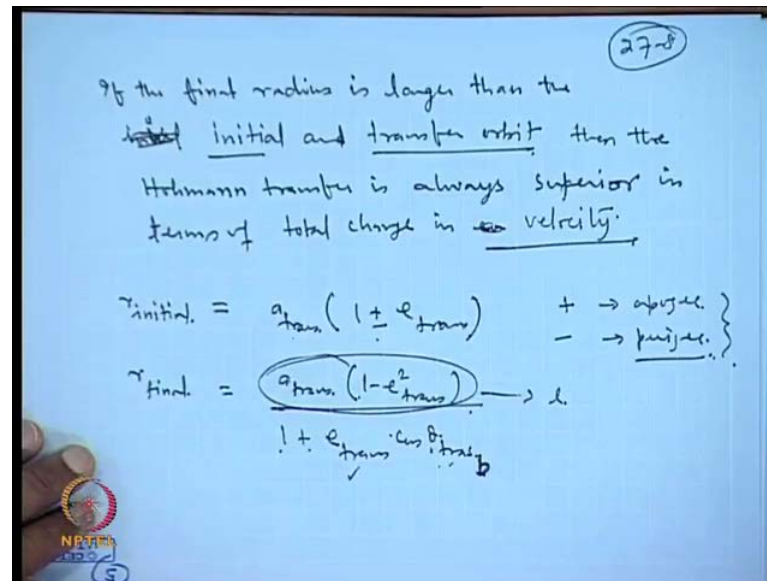 27-8
If the final radius is larger than the
initial and transfer orbit then the
Hohmann transfer is always superior in
terms of total change in velocity.
r initial. = a trans. ( 1 ± e trans ) + → apogee. }
- → perigee. }
r final. = a trans. (1 - e² trans ) → l.
1 + e trans cos θ trans b
NPTEL
5